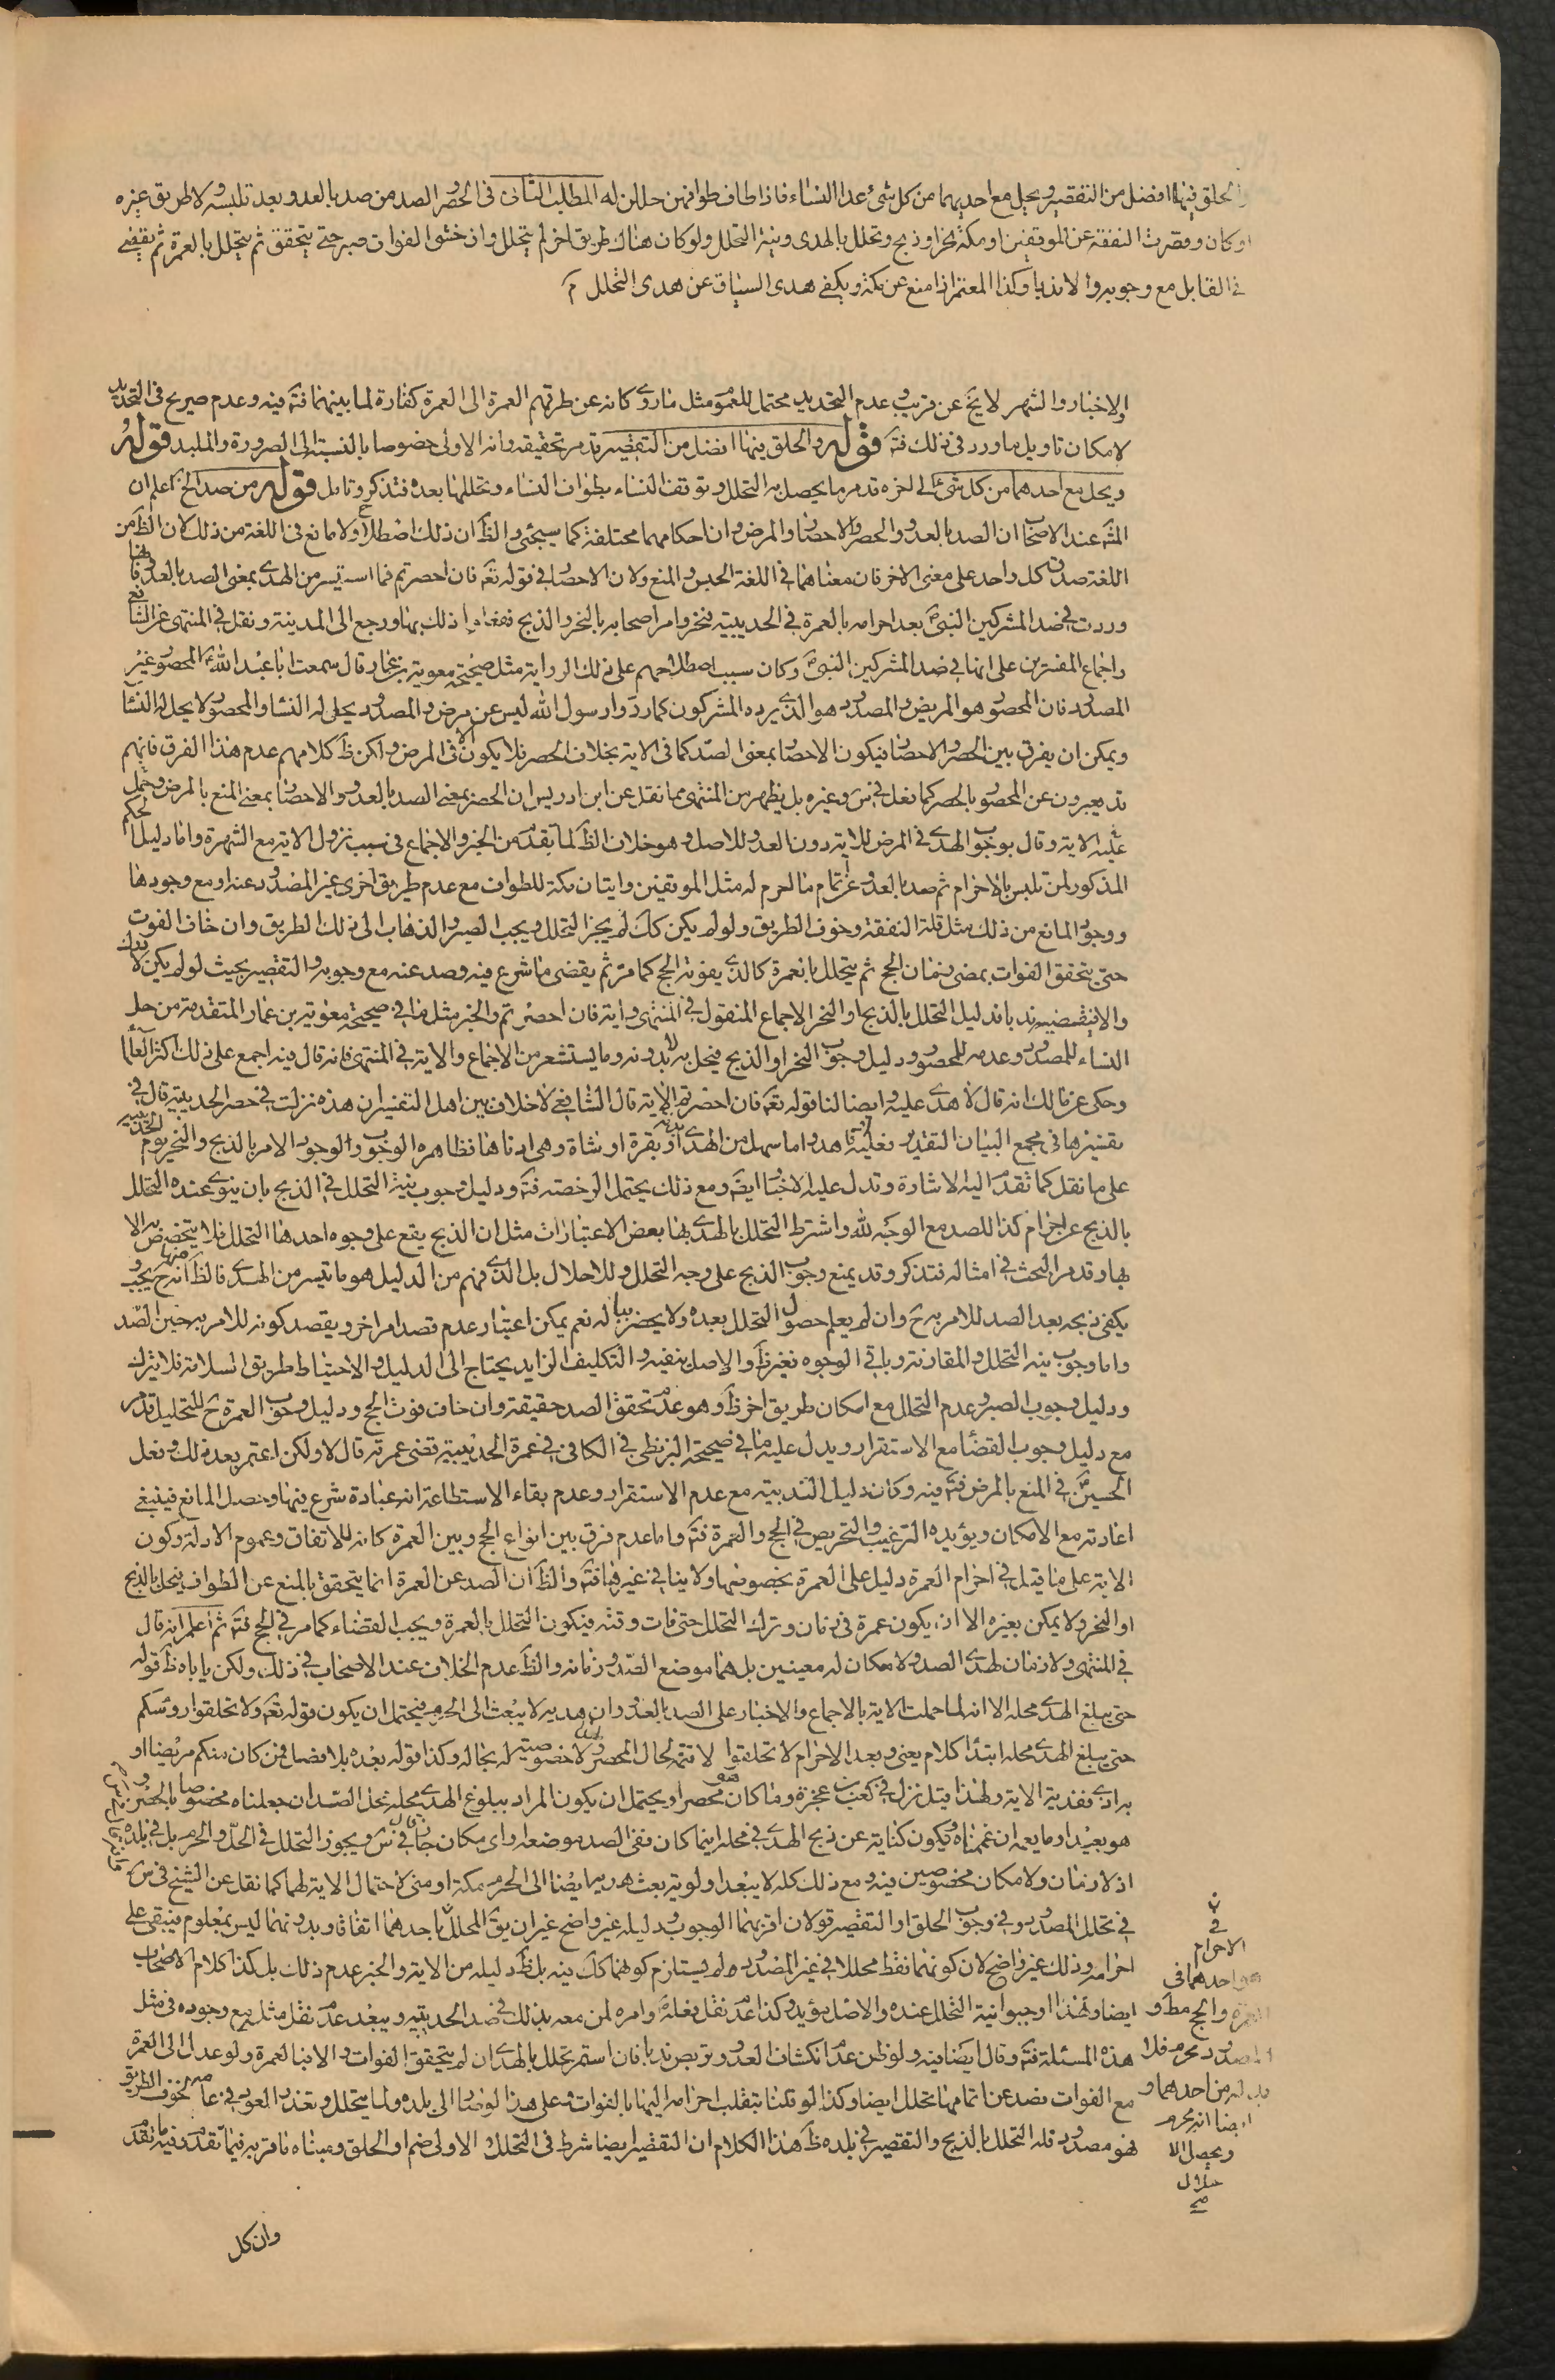 والحلق فيها افضل من التقصير ويحل مع احديهما من كل شئ عدا النساء فاذا طاف طوافهن حللن له المطلب الثانى فى الحصر والصد من صد بالعدو بعد تلبسه ولا طريق غيره
او كان وقصرت النفقة عن الموقفين او مكة نحر او ذبح وتحلل بالهدى ونية التحلل ولو كان هناك طريق اخر لم يتحلل وان خشى الفوات صبر حتى يتحقق ثم يتحلل بالعمرة ثم يقضى
فى القابل مع وجوبه والا ندبا وكذا المعتمر اذا منع عن مكة ويكفى هدى السياق عن هدى التحلل
والاخبار والشهر لا يخ عن قرب وعدم التحديد محتمل للعموم مثل ما روى كانه عن طرقهم العمرة الى العمرة كفارة لما بينهما فتٔ فيه وعدم صريح فى التحديد
لامكان تاويل ما ورد فى ذلك فتٔ قوله والحلق فيها افضل من التقصير قد مر تحقيقه وانه الاولى خصوصا بالنسبة الى الصرورة والملبد قوله
ويحل مع احدهما من كل شئ الى اخره قد مر ما يحصل به التحلل وتوقف النساء بطواف النساء وتحللها بعده فتذكر وتامل قوله من صد الخ اعلم ان
المشٔ عند الاصحاب ان الصد بالعدو والحصر والاحصار بالمرض وان احكامهما مختلفة كما سيجئ والظ ان ذلك اصطلاح ولا مانع فى اللغة من ذلك لان الظ من
اللغة صدق كل واحد على معنى الاخر فان معناهما فى اللغة الحبس والمنع ولان الاحصار فى قوله تعٔ فان احصرتم فما استيسر من الهدى بمعنى الصد بالعدو فانها
وردت فى صد المشركين النبى بعد احرامه بالعمرة فى الحديبية فنحر وامر اصحابه بالنحر والذبح ففعلوا ذلك بها ورجع الى المدينة ونقل فى المنتهى عن الشافعى
واجماع المفسرين على انها فى صد المشركين النبى وكان سبب اصطلاحهم على ذلك الرواية مثل صحيحة معوية بن عمار قال سمعت ابا عبد الله المحصور غير
المصدود فان المحصور هو المريض والمصدود هو الذى يرده المشركون كما ردوا رسول الله ليس من مرض والمصدود يحل له النساء والمحصور لا يحل له النساء
ويمكن ان يفرق بين الحصر والاحصار فيكون الاحصار بمعنى الصد كما فى الاية بخلاف الحصر فلا يكون الا فى المرض ولكن ظ كلامهم عدم هذا الفرق فانهم
قد يعبرون عن المحصور بالحصر كما فعل فى س وغيره بل يظهر من المنتهى مما نقل عن ابن ادريس ان الحصر بمعنى الصد بالعدو والاحصار بمعنى المنع بالمرض وحمل
عليه الاية وقال بوجوب الهدى فى المرض للاية دون العدو للاصل وهو خلاف الظ لما تقدم من الخبر والاجماع فى سبب نزول الاية مع الشهرة واما دليل الحكم
المذكور لمن تلبس بالاحرام ثم صد بالعدو عن اتمام ما احرم له مثل الموقفين واتيان مكة للطواف مع عدم طريق اخرى غير المصدود عنه او مع وجودها
ووجود المانع من ذلك مثل قلة النفقة وخوف الطريق ولو لم يكن كك لم يجز التحلل ويجب الصبر والذهاب الى ذلك الطريق وان خاف الفوت
حتى يتحقق الفوات بمضى زمان الحج ثم يتحلل بالعمرة كالذى يفوته الحج كما مر ثم يقضى ما شرع فيه وصد عنه مع وجوبه والتقصير بحيث لو لم يكن لادرك
والا فيقضيه ندبا فدليل التحلل بالذبح او النحر الاجماع المنقول فى المنتهى واية فان احصرتم والخبر مثل ما فى صحيحة معوية بن عمار المتقدمة من حل
النساء للمصدود وعدمه للمحصور ودليل وجوب النحر او الذبح فيحل به لا بدونه وما يستشعر من الاجماع والاية فى المنتهى فانه قال فيه اجمع على ذلك اكثر العلماء
وحكى عن مالك انه قال لا هدى عليه وايضا لنا قوله تعٔ فان احصرتم الاية قال الشافعى لا خلاف بين اهل التفسير ان هذه نزلت فى حصر الحديبية قال فى
تفسيرها فى مجمع البيان التقدير فعليه هدى اما سهل من الهدى او بقرة او شاة وهى ادناها فظاهره الوجوب والوجوب الامر بالذبح والنحر يوم الحديبية
على ما نقل كما تقدم اليه الاشارة وتدل عليه الاخبار ايضٔ ومع ذلك يحتمل الرخصة فتٔ ودليل وجوب نية التحلل فى الذبح بان ينوى عنده التحلل
بالذبح عن احرام كذا للصد مع الوجه لله واشترط التحلل بالهدى بها بعض الاعتبارات مثل ان الذبح يقع على وجوه احدها التحلل فلا يتخصص به الا
بها وقد مر البحث فى امثاله فتذكر وقد يمنع وجوب الذبح على وجه التحلل وللاحلال بل الذى فهم من الدليل هو ما تيسر من الهدى فالظ انه ح يجب
يكفى ذبحه بعد الصد للامر به ح وان لم يعلم حصول التحلل بعده ولا يحضر بباله نعم يمكن اعتبار عدم قصد امر اخر ويقصد كونه للامر به حين الصد
واما وجوب نية التحلل والمقارنة وباقى الوجوه فغير ظ والاصل ينفيه والتكليف الزايد يحتاج الى الدليل والاحتياط طريق السلامة فلا يترك
ودليل وجوب الصبر وعدم التحلل مع امكان طريق اخر ظ وهو عدم تحقق الصد حقيقة وان خاف فوت الحج ودليل وجوب العمرة ح للتحليل قد مر
مع دليل وجوب القضاء مع الاستقرار ويدل عليه ما فى صحيحة البزنطى فى الكافى فى عمرة الحديبية قضى عمرته قال لا ولكن اعتمر بعد ذلك وفعل
الحسين فى المنع بالمرض فتٔ فيه وكان دليل الندبية مع عدم الاستقرار وعدم بقاء الاستطاعة انه عبادة شرع فيها وحصل المانع فينبغى
اعادته مع الامكان ويؤيده الترغيب والتحريص فى الحج والعمرة فتٔ واما عدم فرق بين انواع الحج وبين العمرة كانه للاتفاق وعموم الادلة وكون
الاية على ما قيل فى احرام العمرة دليل على العمرة بخصوصها ولا ينافى غيرها فتٔ والظ ان الصد عن العمرة انما يتحقق بالمنع عن الطواف فيحل بالذبح
او النحر ولا يمكن بغيره الا ان يكون عمرة فى زمان وترك التحلل حتى فات وقته فيكون التحلل بالعمرة ويجب القضاء كما مر فى الحج فتٔ ثم اعلم انه قال
فى المنتهى ولا زمان لهدى الصد ولا مكان له معينين بل هما موضع الصد وزمانه والظ عدم الخلاف عند الاصحاب فى ذلك ولكن ياباه ظ قوله
حتى يبلغ الهدى محله الا انه لما حملت الاية بالاجماع والاخبار على الصد بالعدو وان هديه لا يبعث الى الحرم فيحتمل ان يكون قوله تعٔ ولا تحلقوا رؤسكم
حتى يبلغ الهدى محله ابتداء كلام يعنى وبعد الاحرام لا تحلقوا لا تتمة لحال المحصر ولا خصوصية له بحاله وكذا قوله بعده بلا فصل فمن كان منكم مريضا او
به اذى ففدية الاية ولهذا قيل نزل فى كعب عجزة وما كان هو محصرا ويحتمل ان يكون المراد ببلوغ الهدى محله محل الصد ان جعلناه مخصوصا بالحصر و
هو بعيد او ما يعمه ان عممناه ويكون كناية عن ذبح الهدى فى محله اينما كان ففى الصد موضعه واى مكان جاز قال فى س ويجوز التحلل فى الحل والحرم بل فى بلده
اذ لا زمان ولا مكان مخصوصين فيه ومع ذلك كله لا يبعد اولوية بعث هديهما ايضا الى الحرم مكة او منى لاحتمال الاية لهما كما نقل عن الشيخ فى س
فى تحلل المصدود وفى وجوب الحلق او التقصير قولان اقربهما الوجوب ودليله غير واضح غير ان يق المحلل باحدهما اتفاقا وبدونهما ليس بمعلوم فيبقى على
احرامه وذلك غير واضح لان كونهما فقط محللا فى غير المصدود لم يستلزم كونهما كك فيه بل ظ دليله من الاية والخبر عدم ذلك بل كذا كلام الاصحاب
ايضا ولهذا اوجبوا نية التحلل عنده والاصل يؤيده وكذا عدم نقل فعله وامره لمن معه بذلك فى صد الحديبية ويبعد عدم نقل مثله مع وجوده فى مثل
هذه المسئلة فتٔ وقال ايضا فيه ولو ظن عدم انكشاف العدو تربص ندبا فان استمر تحلل بالهدى ان لم يتحقق الفوات والا فبالعمرة ولو عدل الى العمرة
مع الفوات فصد عن اتمامها تحلل ايضا وكذا لو قلنا بتقلب احرامه اليها بالفوات وعلى هذا لو صار الى بلده ولما يتحلل وتعذر العود فى عامه لخوف الطريق
فهو مصدود فله التحلل بالذبح والتقصير فى بلده ظ هذا الكلام ان التقصير ايضا شرط فى التحلل والاولى ضم او الحلق ومبناه ما قر به فيما تقدم وفيه ما تقدم
فى
الاحرام
هو احدهما فى
العمرة والحج مط و
المصدود محرم فلا
بد له من احدهما و
ايضا انه محرم
ويحصل الا
حلال
وان كل